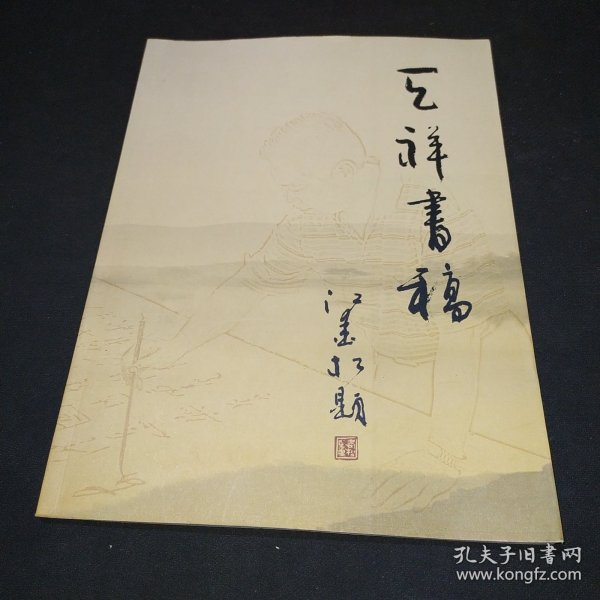 天祥書稿
江 松題
孔夫子旧書网
www.kongfz.com